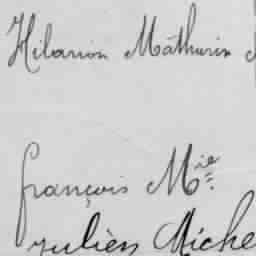 Hilarion Mâthurin
françois M^ie
Julien Miche